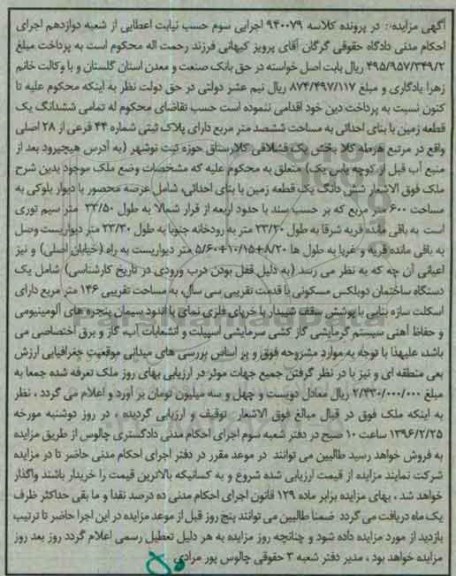 آگهی مزایده: در پرونده کلاسه ۹۴۰۰۷۹ اجرایی سوم حسب نیابت اعطایی از شعبه دوازدهم اجرای
احکام مدنی دادگاه حقوقی گرگان آقای پرویز کیهانی فرزند رحمت اله محکوم است به پرداخت مبلغ
۴۹۵/۹۵۷/۳۴۹/۲ ریال بابت اصل خواسته در حق بانک صنعت و معدن استان گلستان و با وکالت خانم
زهرا یادگاری و مبلغ ۸۷۴/۴۹۷/۱۱۷ ریال نیم عشر دولتی در حق دولت نظر به اینکه محکوم علیه تا
کنون نسبت به پرداخت دین خود اقدامی ننموده است حسب تقاضای محکوم له تمامی ششدانگ یک
قطعه زمین با بنای احداثی به مساحت ششصد متر مربع دارای پلاک ثبتی شماره ۴۴ فرعی از ۲۸ اصلی
واقع در مرتع هزمله کلا بخش یک قشلاقی کلارستاق حوزه ثبت نوشهر (به آدرس هیچیرود بعد از
منبع آب قبل از کوچه یاس یک) متعلق به محکوم علیه که مشخصات وضع ملک موجود بدین شرح
ملک فوق الاشعار شش دانگ یک قطعه زمین با بنای احداثی، شامل عرصه محصور با دیوار بلوکی به
مساحت ۶۰۰ متر مربع که بر حسب سند با حدود اربعه از قرار شمالا به طول ۲۲/۵۰ متر سیم توری
است به باقی مانده قریه شرقا به طول ۲۳/۲۰ متر به رودخانه جنوبا به طول ۲۳/۳۰ متر دیواریست وصل
به باقی مانده قریه و غربا به طول ها ۸/۲۰+۱۰/۱۵+۵/۶۰ متر دیواریست به راه (خیابان اصلی) و نیز
اعیانی آن چه که به نظر می رسد (به دلیل قفل بودن درب ورودی در تاریخ کارشناسی) شامل یک
دستگاه ساختمان دوبلکس مسکونی با قدمت تقریبی سی سال، به مساحت تقریبی ۱۴۶ متر مربع دارای
اسکلت سازه بنایی با پوشش سقف شیبدار با خرپای فلزی نمای با اندود سیمان پنجره های آلومینیومی
و حفاظ آهنی سیستم گرمایشی گاز کشی سرمایشی اسپیلت و انشعابات آب، گاز و برق اختصاصی می
باشد، علیهذا با توجه به موارد مشروحه فوق و بر اساس بررسی های میدانی موقعیت جغرافیایی ارزش
بعی منطقه ای و نیز با در نظر گرفتن جمیع جهات موثر در ارزیابی بهای روز ملک تعرفه شده جمعا به
مبلغ ۲/۴۳۰/۰۰۰/۰۰۰ ریال معادل دویست و چهل و سه میلیون تومان بر آورد و اعلام می گردد ، نظر
به اینکه ملک فوق در قبال مبالغ فوق الاشعار ، توقیف و ارزیابی گردیده ، در روز دوشنبه مورخه
۱۳۹۶/۲/۲۵ ساعت ۱۰ صبح در دفتر شعبه سوم اجرای احکام مدنی دادگستری چالوس از طریق مزایده
به فروش خواهد رسید طالبین می توانند در موعد مقرر در دفتر اجرای احکام مدنی حاضر تا در مزایده
شرکت نمایند مزایده از قیمت ارزیابی شده شروع و به کسانیکه بالاترین قیمت را خریدار باشند واگذار
خواهد شد ، بهای مزایده برابر ماده ۱۲۹ قانون اجرای احکام مدنی ده درصد نقدا و ما بقی حداکثر ظرف
یک ماه دریافت می گردد ضمنا طالبین می توانند پنج روز قبل از موعد مزایده در این اجرا حاضر تا ترتیب
بازدید از مورد مزایده داده شود و چنانچه روز مزایده به هر دلیل تعطیل رسمی اعلام گردد روز بعد روز
مزایده خواهد بود ، مدیر دفتر شعبه ۳ حقوقی چالوس پور مرادی